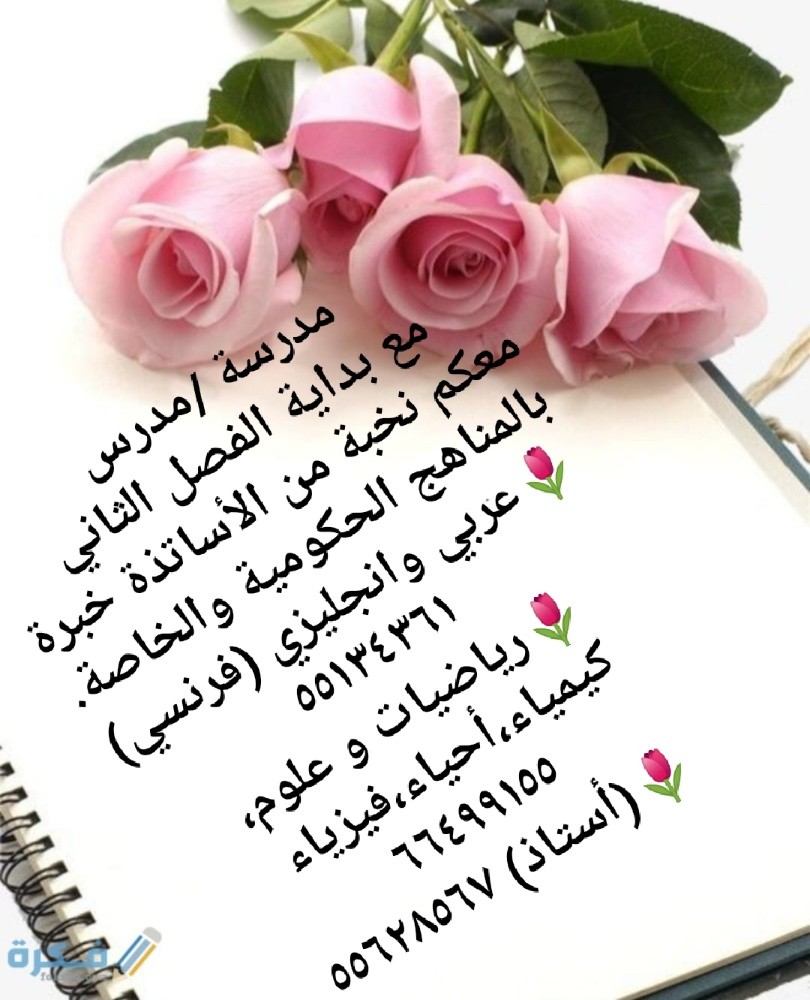 مدرسة /مدرس
مع بداية الفصل الثاني
معكم نخبة من الأساتذة خبرة
بالمناهج الحكومية والخاصة.
🌷عربي وانجليزي (فرنسي)
٥٥١٣٤٣٦١
🌷رياضيات و علوم،
كيمياء،أحياء،فيزياء
٦٦٤٩٩١٥٥
🌷(أستاذ) ٥٥٦٢٨٥٦٧
فكرة